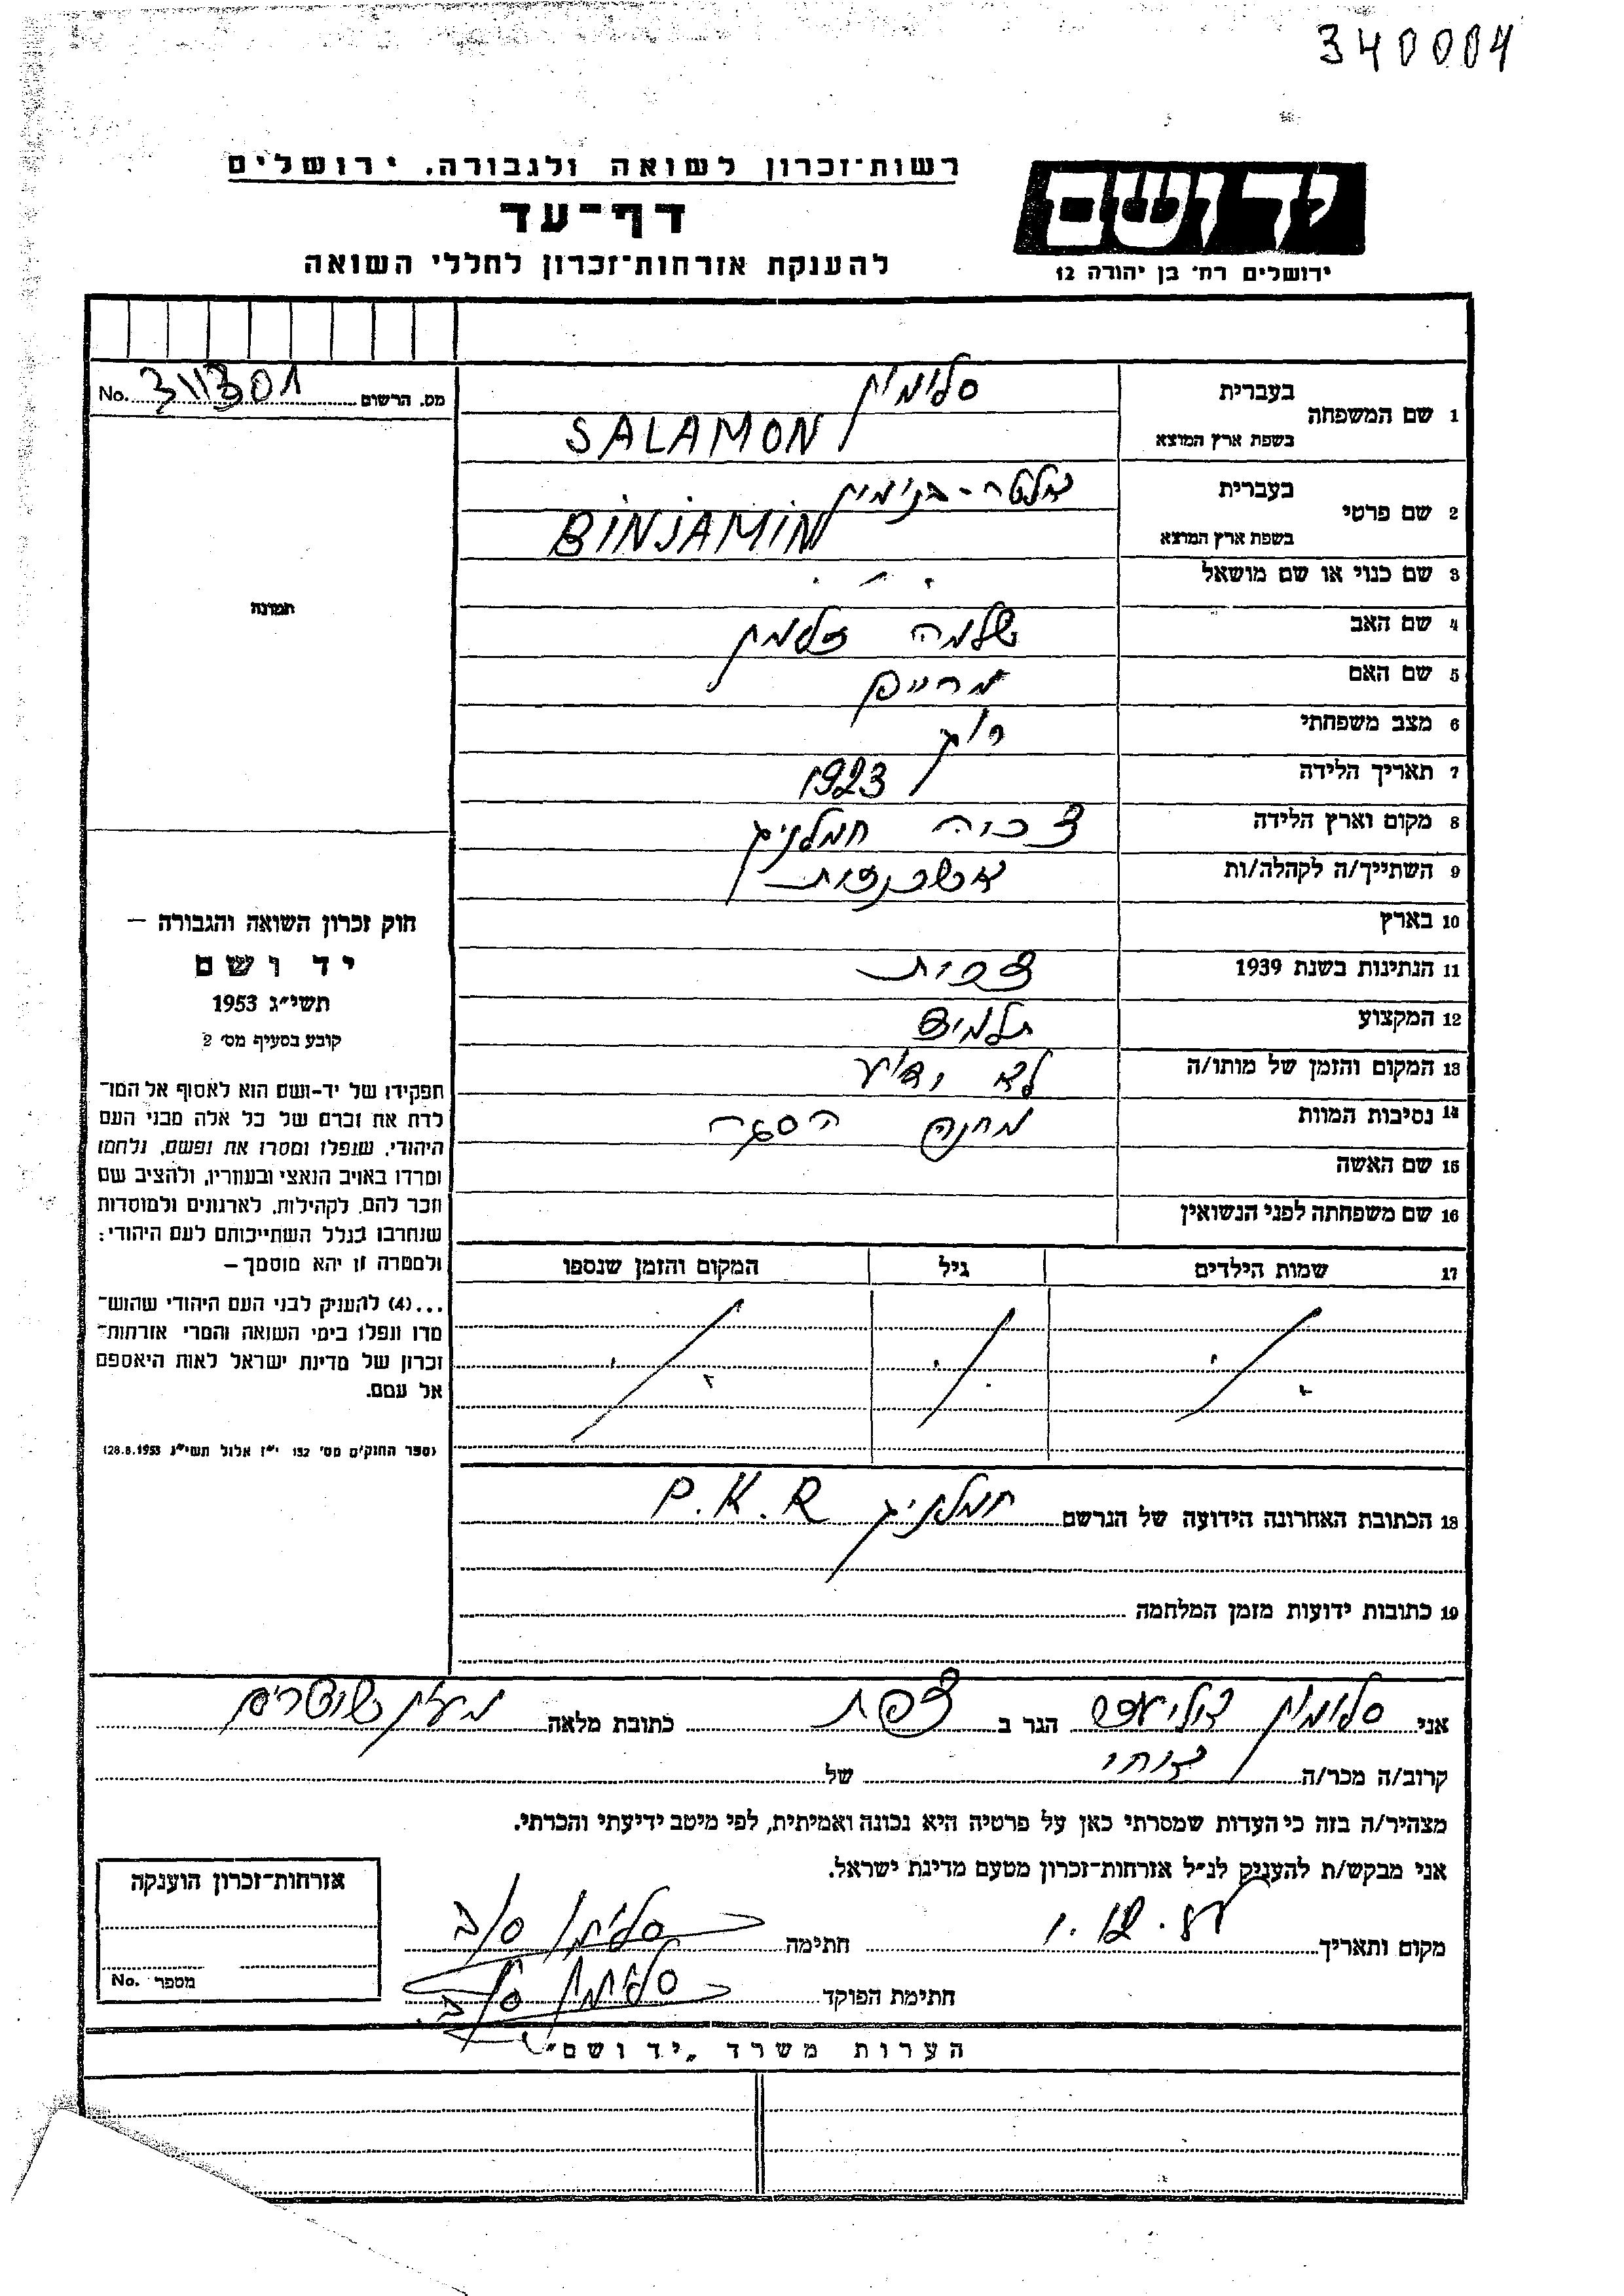 340004
רשות־זכרון לשואה ולגבורה, ירושלים
דף־עד
להענקת אזרחות־זכרון לחללי השואה
יד ושם
ירושלים רח׳ בן יהודה 12
מס. הרשום 311301 No.
1 שם המשפחה
בעברית סלומון
בשפת ארץ המוצא SALAMON
2 שם פרטי
בעברית אלטר-בנימין
בשפת ארץ המוצא BINJAMIN
3 שם כנוי או שם מושאל
4 שם האב שלמה זלמן
5 שם האם מרים
6 מצב משפחתי רווק
7 תאריך הלידה 1923
8 מקום וארץ הלידה
9 השתייך/ה לקהלה/ות
10 בארץ
11 הנתינות בשנת 1939
12 המקצוע תלמיד
13 המקום והזמן של מותו/ה לא ידוע
14 נסיבות המוות מחנה הסגר
15 שם האשה
16 שם משפחתה לפני הנשואין
17 שמות הילדים גיל המקום והזמן שנספו
18 הכתובת האחרונה הידועה של הנרשם P.K.R
19 כתובות ידועות מזמן המלחמה
תמונה
חוק זכרון השואה והגבורה –
יד ושם
תשי״ג 1953
קובע בסעיף מס׳ 2
תפקידו של יד-ושם הוא לאסוף אל המו־
לדת את זכרם של כל אלה מבני העם
היהודי, שנפלו ומסרו את נפשם, נלחמו
ומרדו באויב הנאצי ובעוזריו, ולהציב שם
וזכר להם, לקהילות, לארגונים ולמוסדות
שנחרבו בגלל השתייכותם לעם היהודי;
ולמטרה זו יהא מוסמך –
...(4) להעניק לבני העם היהודי שהוש־
מדו ונפלו בימי השואה והמרי אזרחות־
זכרון של מדינת ישראל לאות היאספם
אל עמם.
(ספר החוקים מס׳ 132 י״ז אלול תשי״ג 28.8.1953)
אני סלומון הגר ב צפת כתובת מלאה
קרוב/ה מכר/ה אחי של
מצהיר/ה בזה כי העדות שמסרתי כאן על פרטיה היא נכונה ואמיתית, לפי מיטב ידיעתי והכרתי.
אני מבקש/ת להעניק לנ״ל אזרחות־זכרון מטעם מדינת ישראל.
מקום ותאריך חתימה
חתימת הפוקד
אזרחות־זכרון הוענקה
מספר No.
הערות משרד „יד ושם״